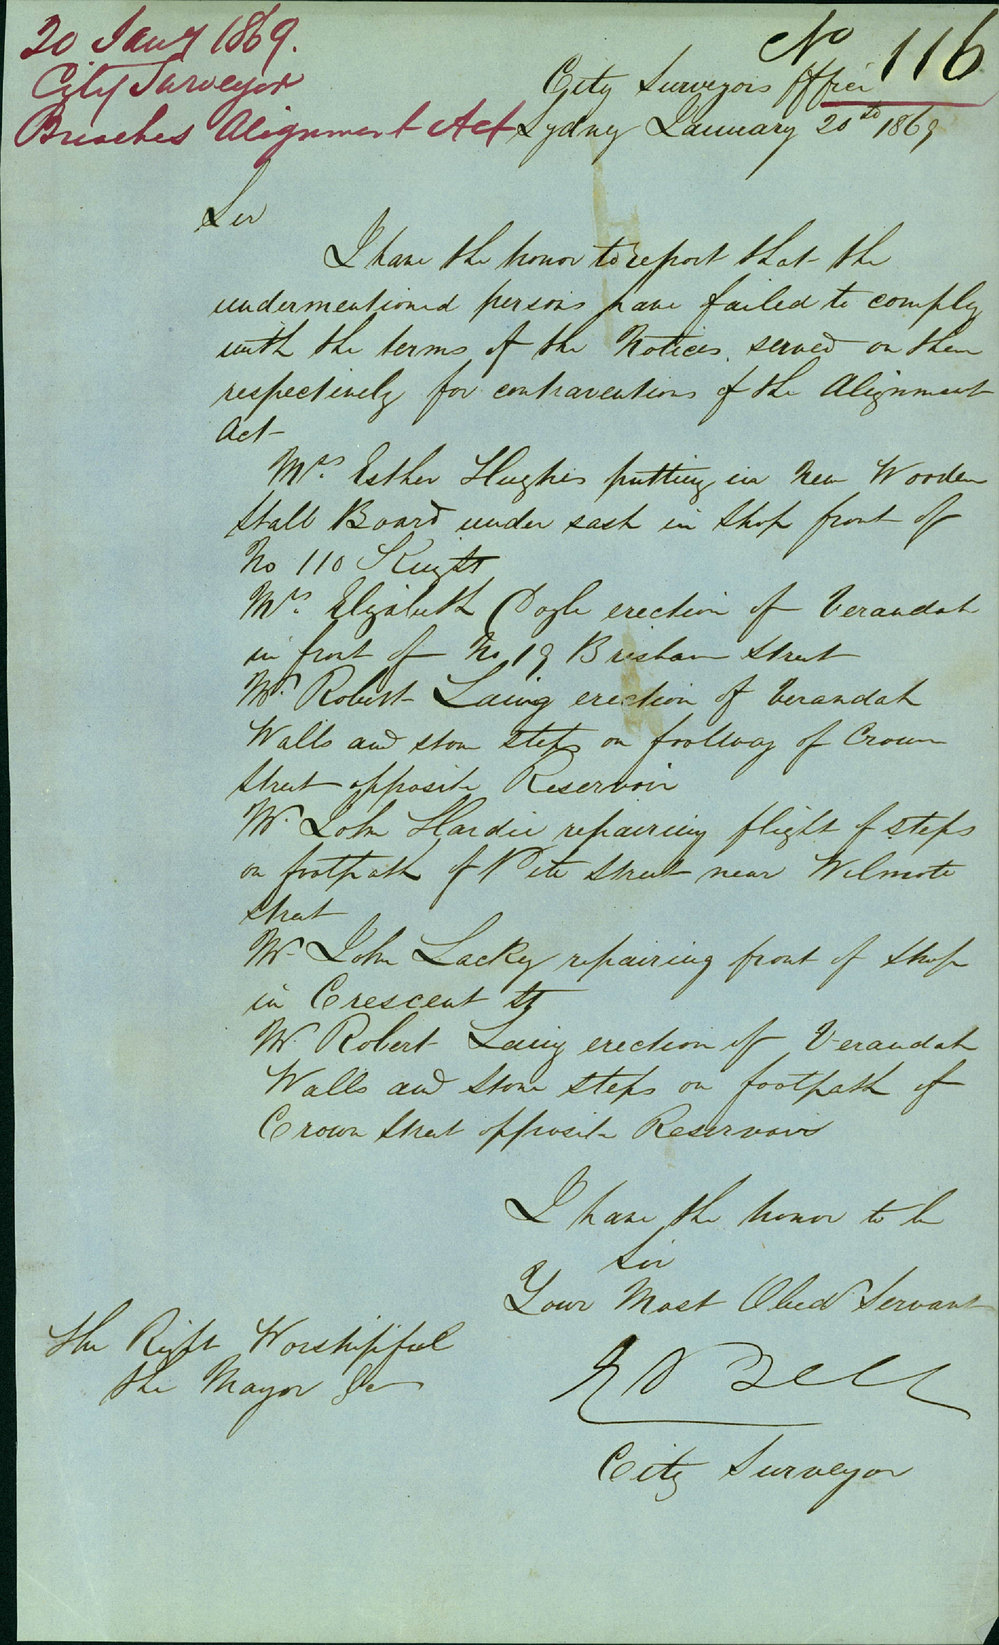 20 Jany 1869.
City Surveyor
Breaches Alignment Act
No 116
City Surveyors Office
Sydney January 20th 1869
Sir
I have the honor to report that the
undermentioned persons have failed to comply
with the terms of the Notices served on them
respectively for contraventions of the Alignment
Act
Mrs. Esther Hughes putting in New Wooden
Stall Board under sash in Shop front of
No 110 Kent St
Mrs. Elizabeth Doyle erection of Verandah
in front of No 19 Brisbane Street
Mr. Robert Laing erection of Verandah
Walls and stone steps on footway of Crown
Street opposite Reservoir
Mr. John Hardie repairing flight of steps
on footpath of Pitt Street near Wilmott
Street
Mr John Lackey repairing front of shop
in Crescent St
Mr. Robert Laing erection of Verandah
Walls and Stone steps on footpath of
Crown Street opposite Reservoir
I have the honor to be
Sir
Your Most Obed Servant
Bell
City Surveyor
The Right Worshipful
The Mayor &c